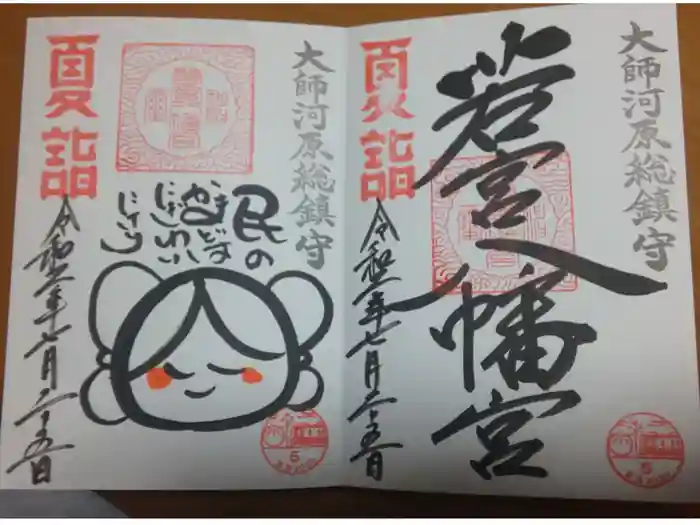 大師河原総鎮守
若宮八幡宮
夏詣
令和二年七月二十五日
大師河原総鎮守
民の
かまどは
にぎわい
にけり
夏詣
令和二年七月二十五日